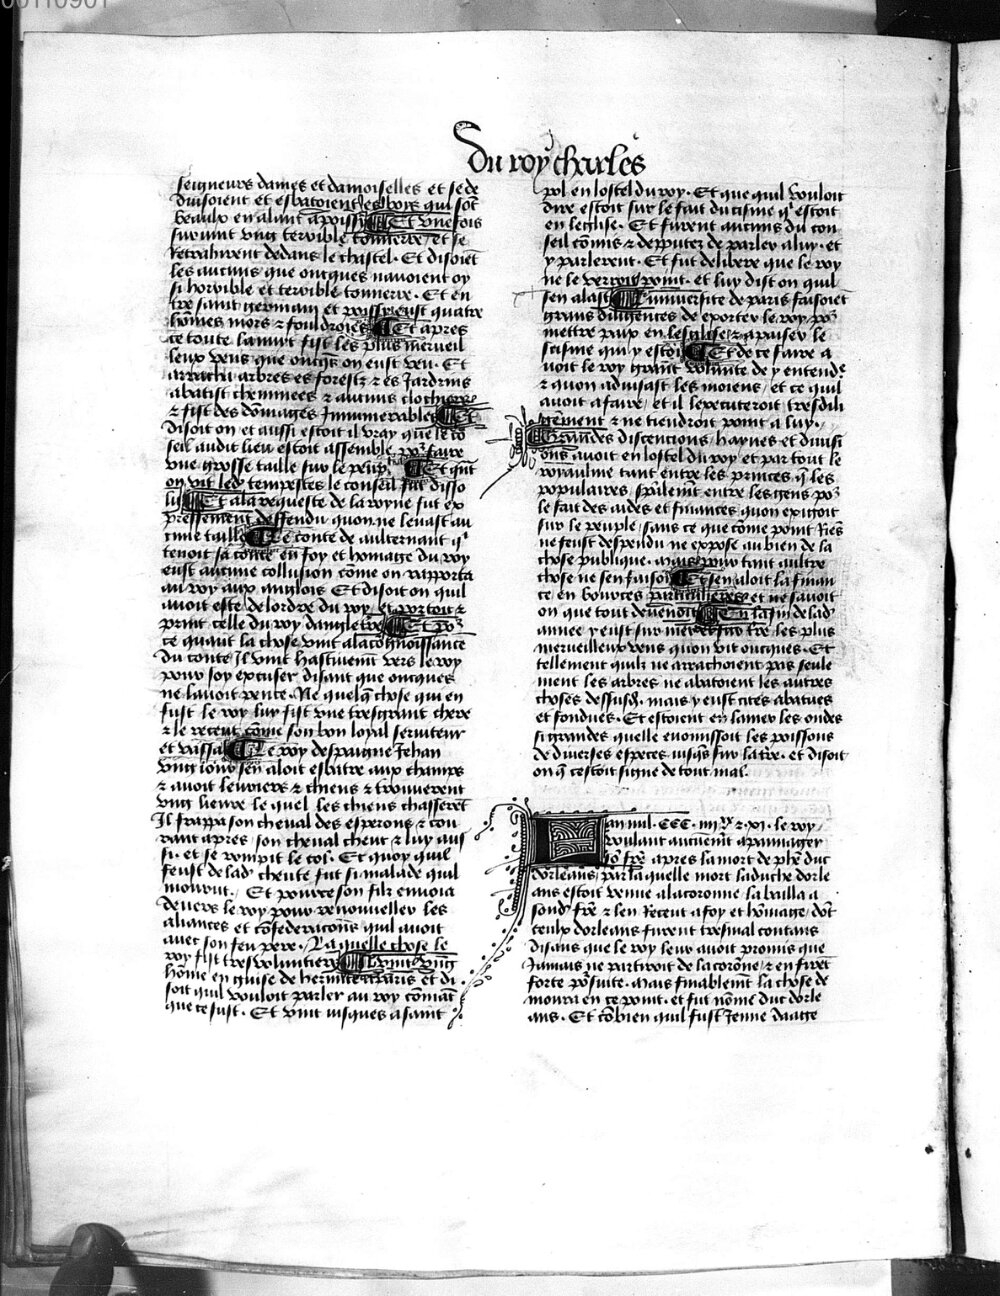 00110901
Du roy charles
seigneurs dames et damoiselles et se de
duisoient et esbatoient es bois qui sot
beaulx en alant a poissy Et une fois
survint ung terrible tonnerre / et se
Retrahirent dedans le chastel . Et disoiet
les aucuns que oncques navoient oy
si horrible et terrible tonnerre . Et en
tre saint germain et poissy eust quatre
homes mors & fouldroies Et apres
ce toute la nuit fist les plus merveil
leux vens que oncqs on eust veu . Et
arracha arbres es forestz & es Jardins
abatist cheminees & aucuns clochiers
& fist des domages Innumerables Et
disoit on et aussi estoit il vray que le co
seil audit lieu estoit assemble por faire
une grosse taille sur le peuple Et qut
on vit led tempestes le conseil fut disso
lu Et a la requeste de la royne fut ex
pressement deffendu quon ne levast au
cune taille Le conte de aulternant q
tenoit sa conte en foy et homage du roy
eust aucune collusion come on rapporta
au roy aux anglois Et disoit on quil
avoit este de lordre du roy et portoit &
print celle du roy dangletre Et po
ce quant la chose vint a la cognoissance
du conte Il vint hastivemt vers le roy
pour soy excuser disant que oncques
ne lavoit pense . Ne quelq chose qui en
fust le roy luy fist une tresgrant chere
& le receut come son bon loyal serviteur
et vassal Le roy despaigne Jehan
ung iour sen aloit esbatre aux champs
& avoit levriers & chiens & trouverent
ung lievre le quel les chiens chasseret
Il frappa son cheval des esperons & cou
rant apres / son cheval cheut & luy aus
si . et se rompit le col . Et quoy quil
feust de lad cheute fut si malade quil
mourut . Et pource son filz envoia
devers le roy pour renouveller les
aliances et cofederacions quil avoit
avec son feu pere . La quelle chose le
roy fist tres voluntiers Il vint ung
home en guise de hermite a paris et di
soit quil vouloit parler au roy comant
que ce fust . Et vint iusques a saint
pol en lostel du roy . Et que quil vouloit
dire estoit sur le fait du cisme q estoit
en leglise . Et furent aucuns du con
seil comis & depputez de parler a luy . et
y parlerent . Et fut delibere que le roy
ne le verroit point . et luy dist on quil
sen alast Luniversite de paris faisoiet
grans diligences de exorter le roy po
mettre paix en leglise & apaiser le
scisme qui y estoit Et de ce faire a
voit le roy grant volunte de y entendre
& quon advisast les moiens / et ce quil
avoit a faire / et il lexecuteroit tresdili
gement & ne tiendroit point a luy .
Grandes discencions / haynes et divisi
ons avoit en lostel du roy et par tout le
royaulme tant entre les princes q les
populaires . spalemt entre les gens po
le fait des aides et finances / quon exigoit
sur le peuple / sans ce que come point Riens
ne feust despendu ne expose au bien de la
chose publique . mais pour tant aultre
chose ne sen faisoit Et sen aloit la finan
ce en bources particulieres et ne savoit
on que tout devenoit En la fin de lad
annee y eust sur mer et sur tre les plus
merveilleux vens quon vit oncques . Et
tellement quilz ne arrachoient pas seule
ment les arbres ne abatoient les autres
choses dessusd . mais y eust cites abatues
et fondues . Et estoient en la mer les ondes
si grandes quelle envoyssoit les poissons
de diverses especes iusqs sur la tre . et disoit
on q cestoit signe de tout mal .
Lan mil . CCC . iiii xx & xi . le roy
voulant aucunemt apannager
so fre apres la mort de phe duc
dorleans / par la quelle mort la duche dorle
ans estoit venue a la coronne la bailla a
sond fre & len Receut a foy et homage / dot
ceulx dorleans furent tresmal contans
disans que le roy leur avoit promis que
Jamais ne partiroit de la corone / & en firet
forte porsuite . mais finablemt la chose de
moura en ce point . et fut nome duc dorle
ans . Et combien quil fust Jenne daage